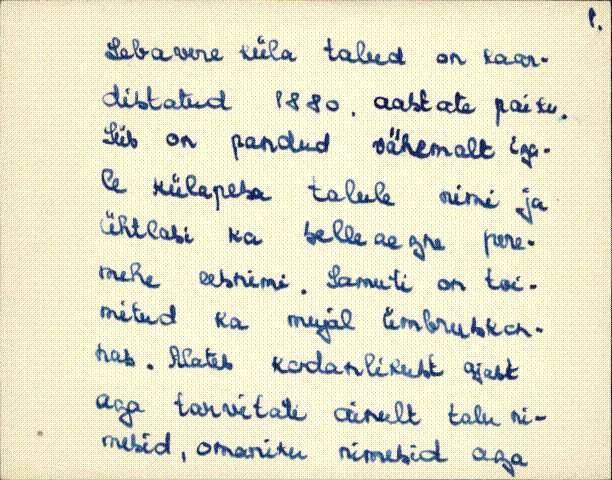 1.
Sebavere küla talud on kaar-
distatud 1880. aastate paiku.
Siis on pandud vähemalt iga-
le külapesa talule nimi ja
ühtlasi ka selleaegne pere-
mehe eesnimi. Samuti on toi-
mitud ka mujal ümbruskon-
nas. Alates kodanlikust ajast
aga tarvitati ainult talu ni-
mesid, omaniku nimesid aga